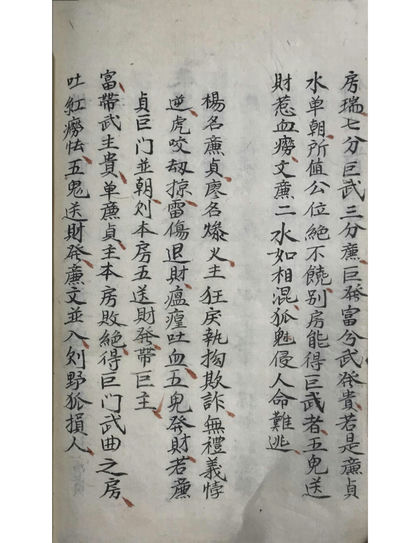 房瑞七分巨武三分廉巨發富兮武發貴若是廉貞
水单朝所值公位絕不饒别房能得巨武者五鬼送
財惹血癆文廉二水如相混狐魅侵人命難逃
楊名廉貞廖名燥火主狂戾執拘欺詐無禮義悖
逆虎咬劫掠雷傷退財瘟㾮吐血五鬼發財若廉
貞巨門並朝刘本房五送財發帶巨主
富帶武主貴单廉貞主本房敗絕得巨門武曲之房
吐紅癆怯五鬼送財發廉文並入刘野狐損人